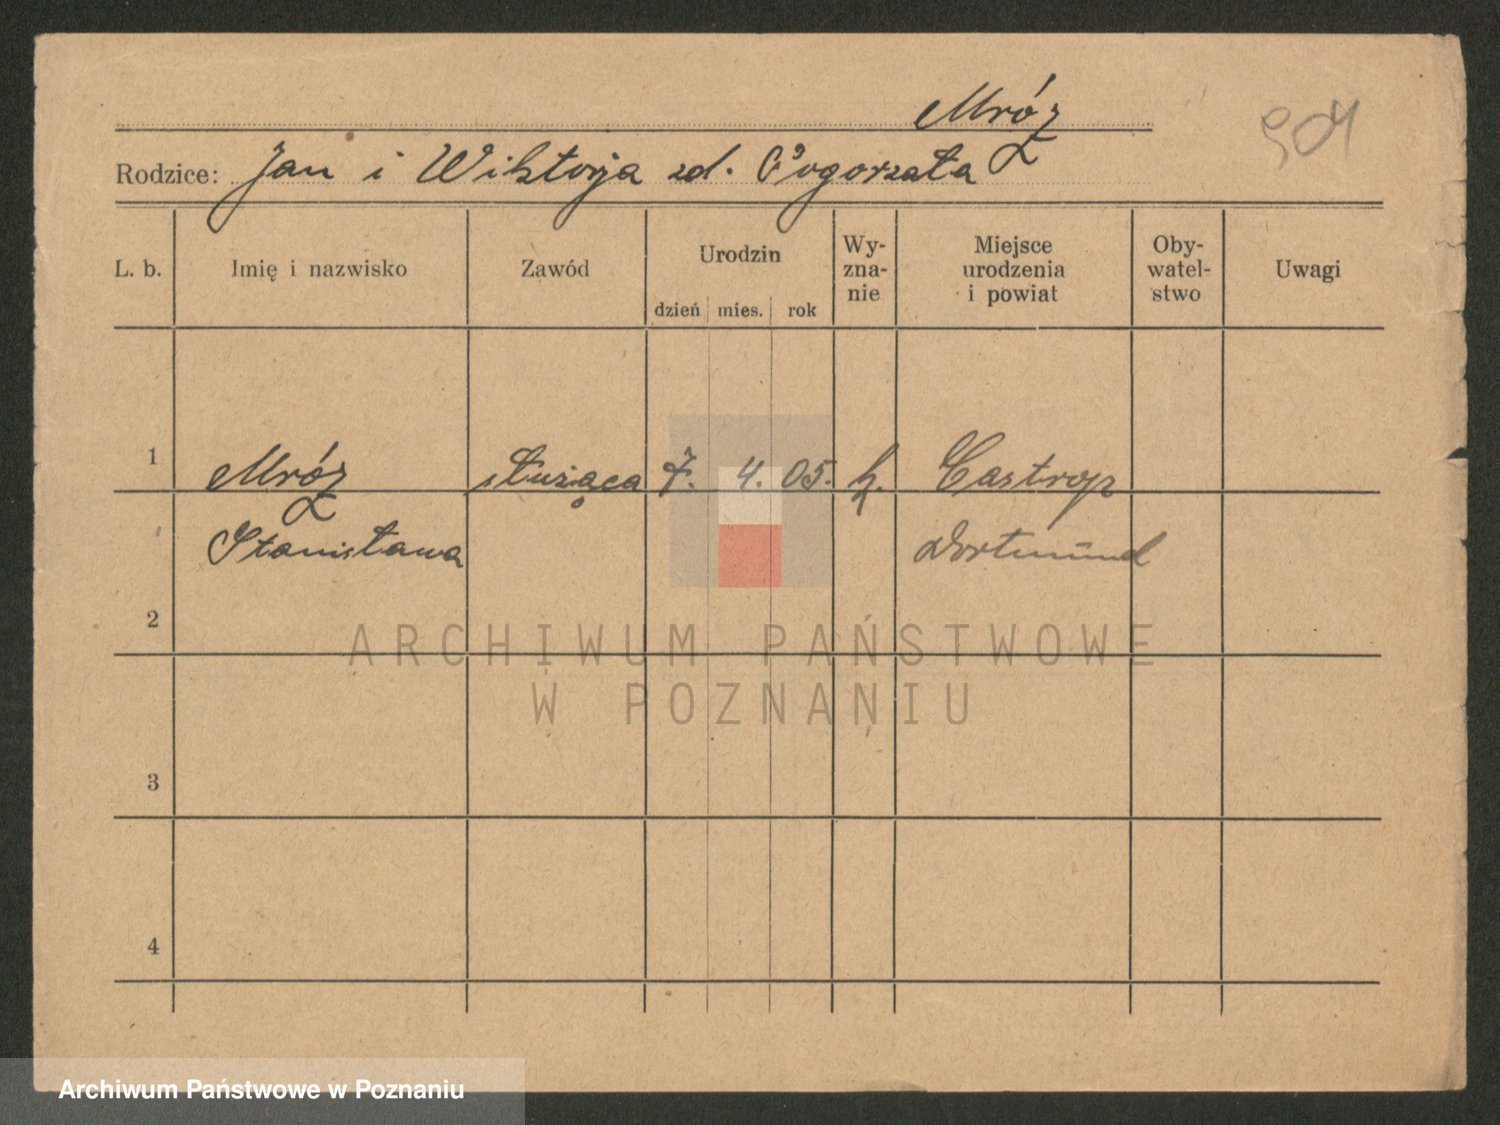 Mróz
Rodzice: Jan i Wiktorja zd. Pogorzała
L. b. Imię i nazwisko Zawód Urodzin Wy- Miejsce Oby- Uwagi
zna- urodzenia watel-
nie i powiat stwo
dzień mies. rok
1 Mróz służąca 7. 4. 05. k. Castrop
Stanisława Dortmund
2
ARCHIWUM PAŃSTWOWE
W POZNANIU
3
4
Archiwum Państwowe w Poznaniu